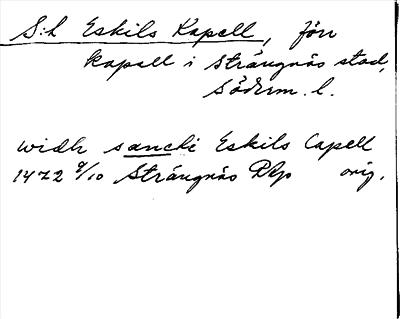 S:t Eskils Kapell, förr
kapell i Strängnäs stad,
Söderm. l.
widh sancti Eskils Capell
1472 9/10 Strängnäs RAp orig.